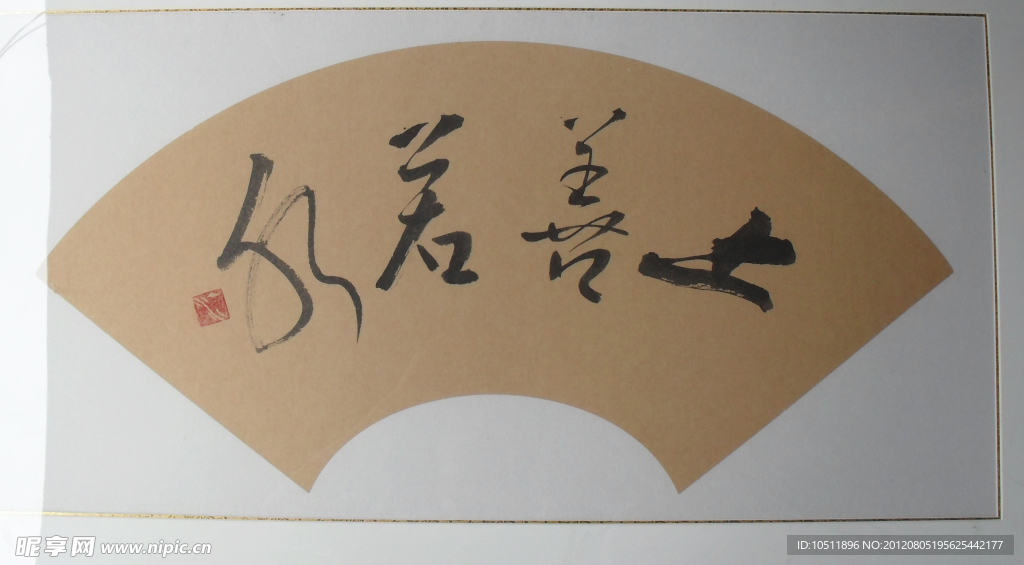 上善若水
昵享网 www.nipic.cn
ID:10511896 NO:20120805195625442177